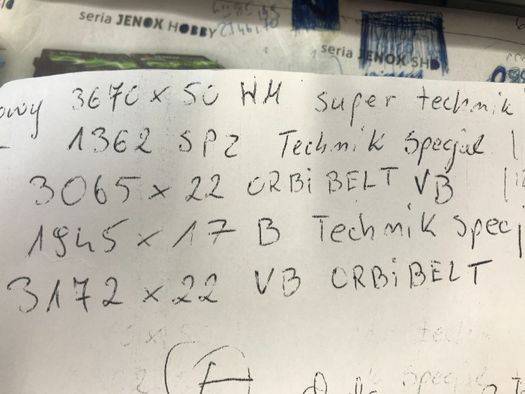 seria JENOX HOBBY
seria JENOX SHD
owy 3670 x 50 WH super technik
1362 SPZ Technik Specjal
3065 x 22 ORBiBELT VB
1945 x 17 B Technik Spec
3172 x 22 VB ORBiBELT